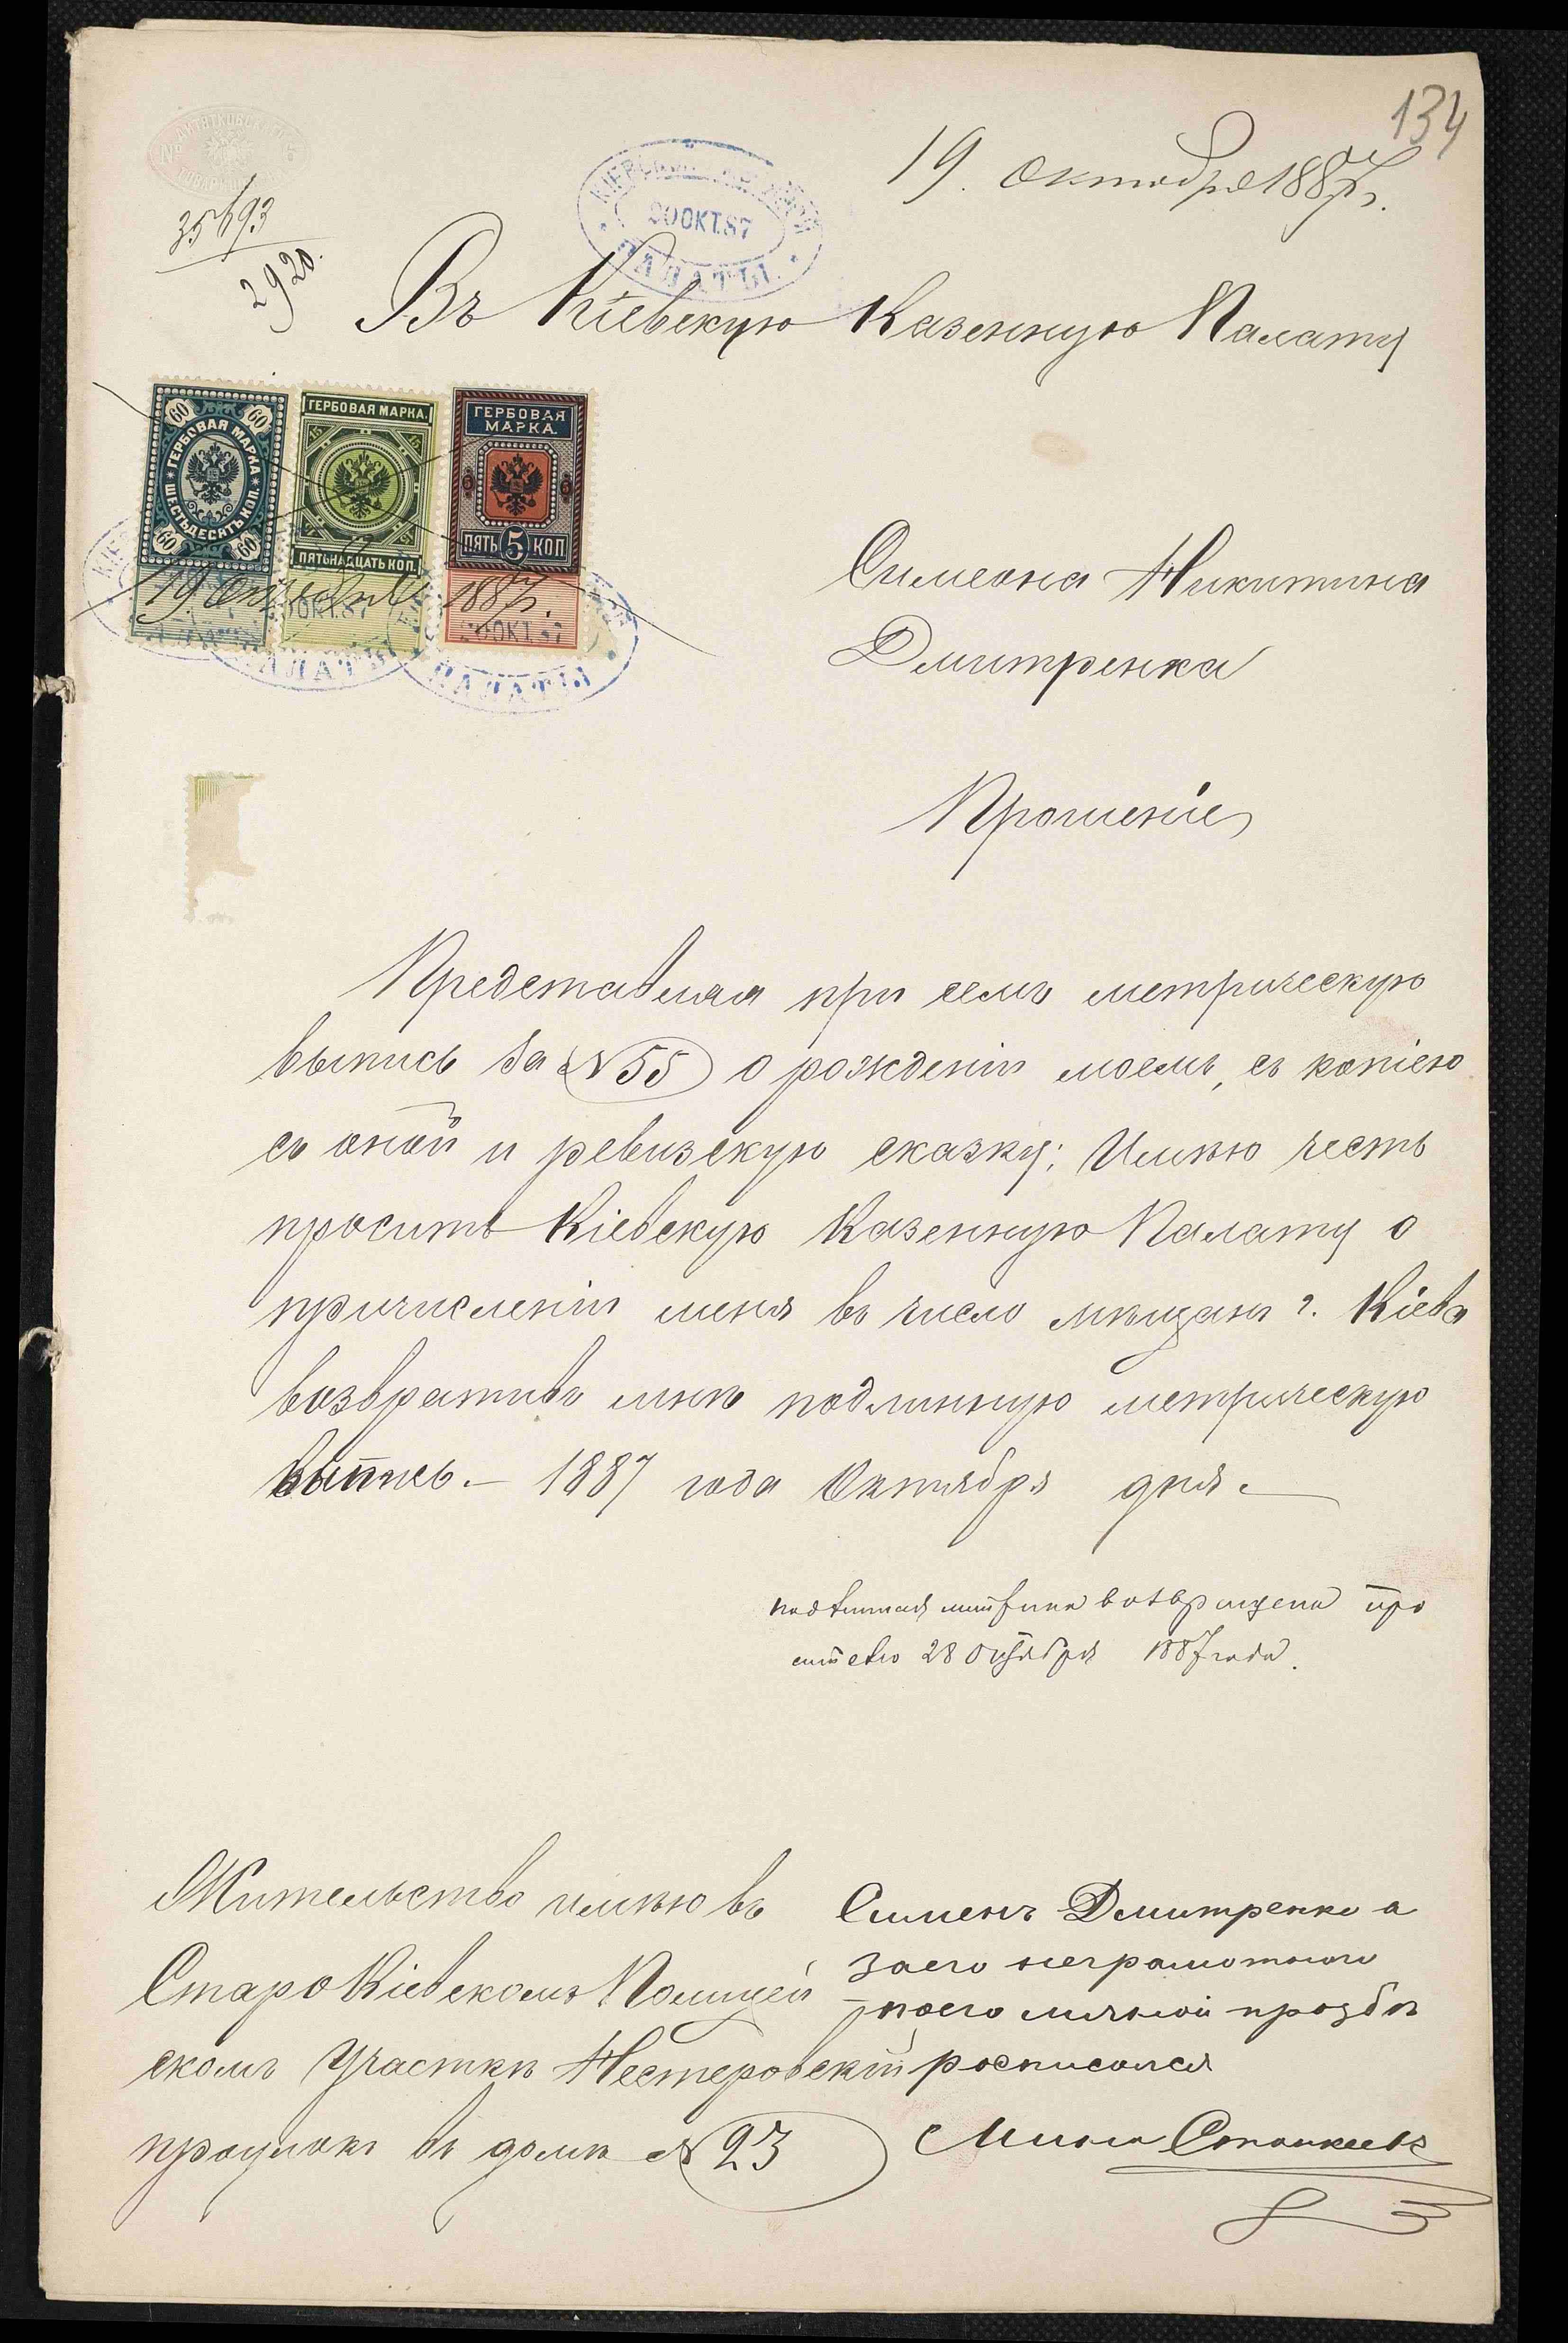 134
19. Октября 1887 г.
КІЕВСКОЙ КАЗЕННОЙ
20 ОКТ. 87
ПАЛАТЫ
35693
2920.
Въ Кіевскую Казенную Палату
60 60
ГЕРБОВАЯ МАРКА
ШЕСТЬДЕСЯТЪ КОП.
60 60
ГЕРБОВАЯ МАРКА.
15 15
ПЯТЬНАДЦАТЬ КОП.
ГЕРБОВАЯ
МАРКА.
ПЯТЬ 5 КОП
19 Октября 1887 г.
ОКТ. 87
20 ОКТ. 87
ПАЛАТЫ
ПАЛАТЫ
Симеона Никитина
Дмитренка
Прошеніе
Представляя при семъ метрическую
выпись за № 55 о рожденіи моемъ, съ копіею
съ оной и ревизскую сказку; Имѣю честь
просить Кіевскую Казенную Палату о
причисленіи меня въ число мѣщанъ г. Кіева
возвративъ мнѣ подлинную метрическую
выпись.— 1887 года Октября дня.—
подлинная метрика возвращена про
сителю 28 Октября 1887 года.
Жительство имѣю въ
Старокіевскомъ Полицей
скомъ Участкѣ Нестеровскій
проулокъ въ домѣ № 23
Сименъ Дмитренко а
за его неграмотного
по его личной прозбѣ
росписался
Мина Станкеев